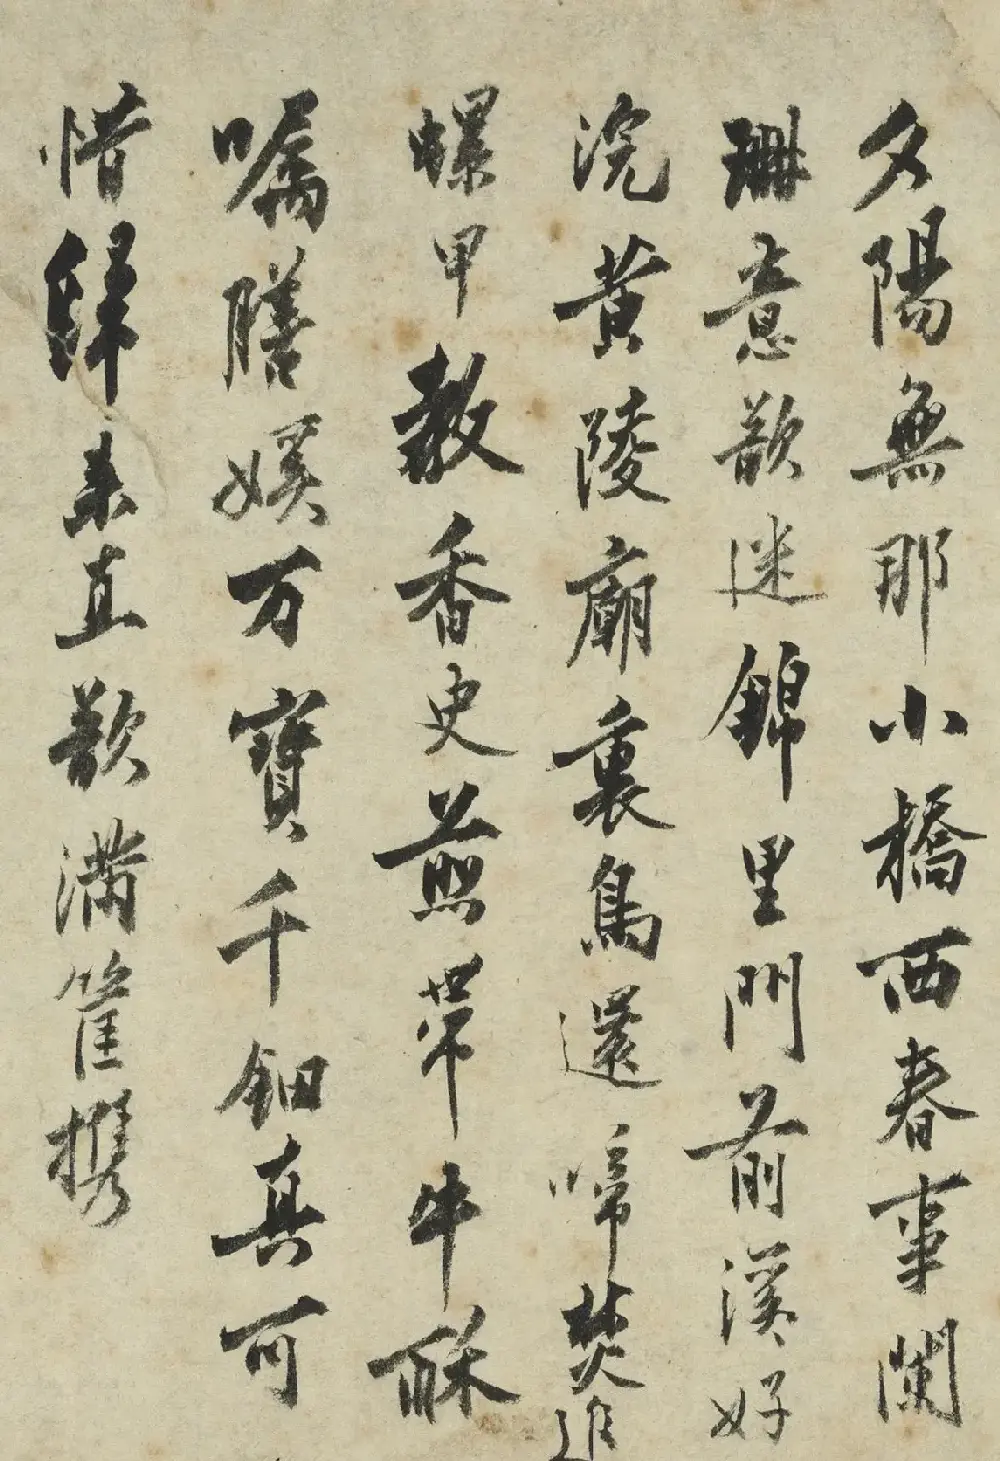 夕陽無那小橋西春事闌
珊意欲迷錦里門前溪好
浣黄陵廟裏鳥還啼焚進
螺甲教香史煎帶牛酥
囑膳娱万寶千鈿真可
惜歸来直欲滿筐携